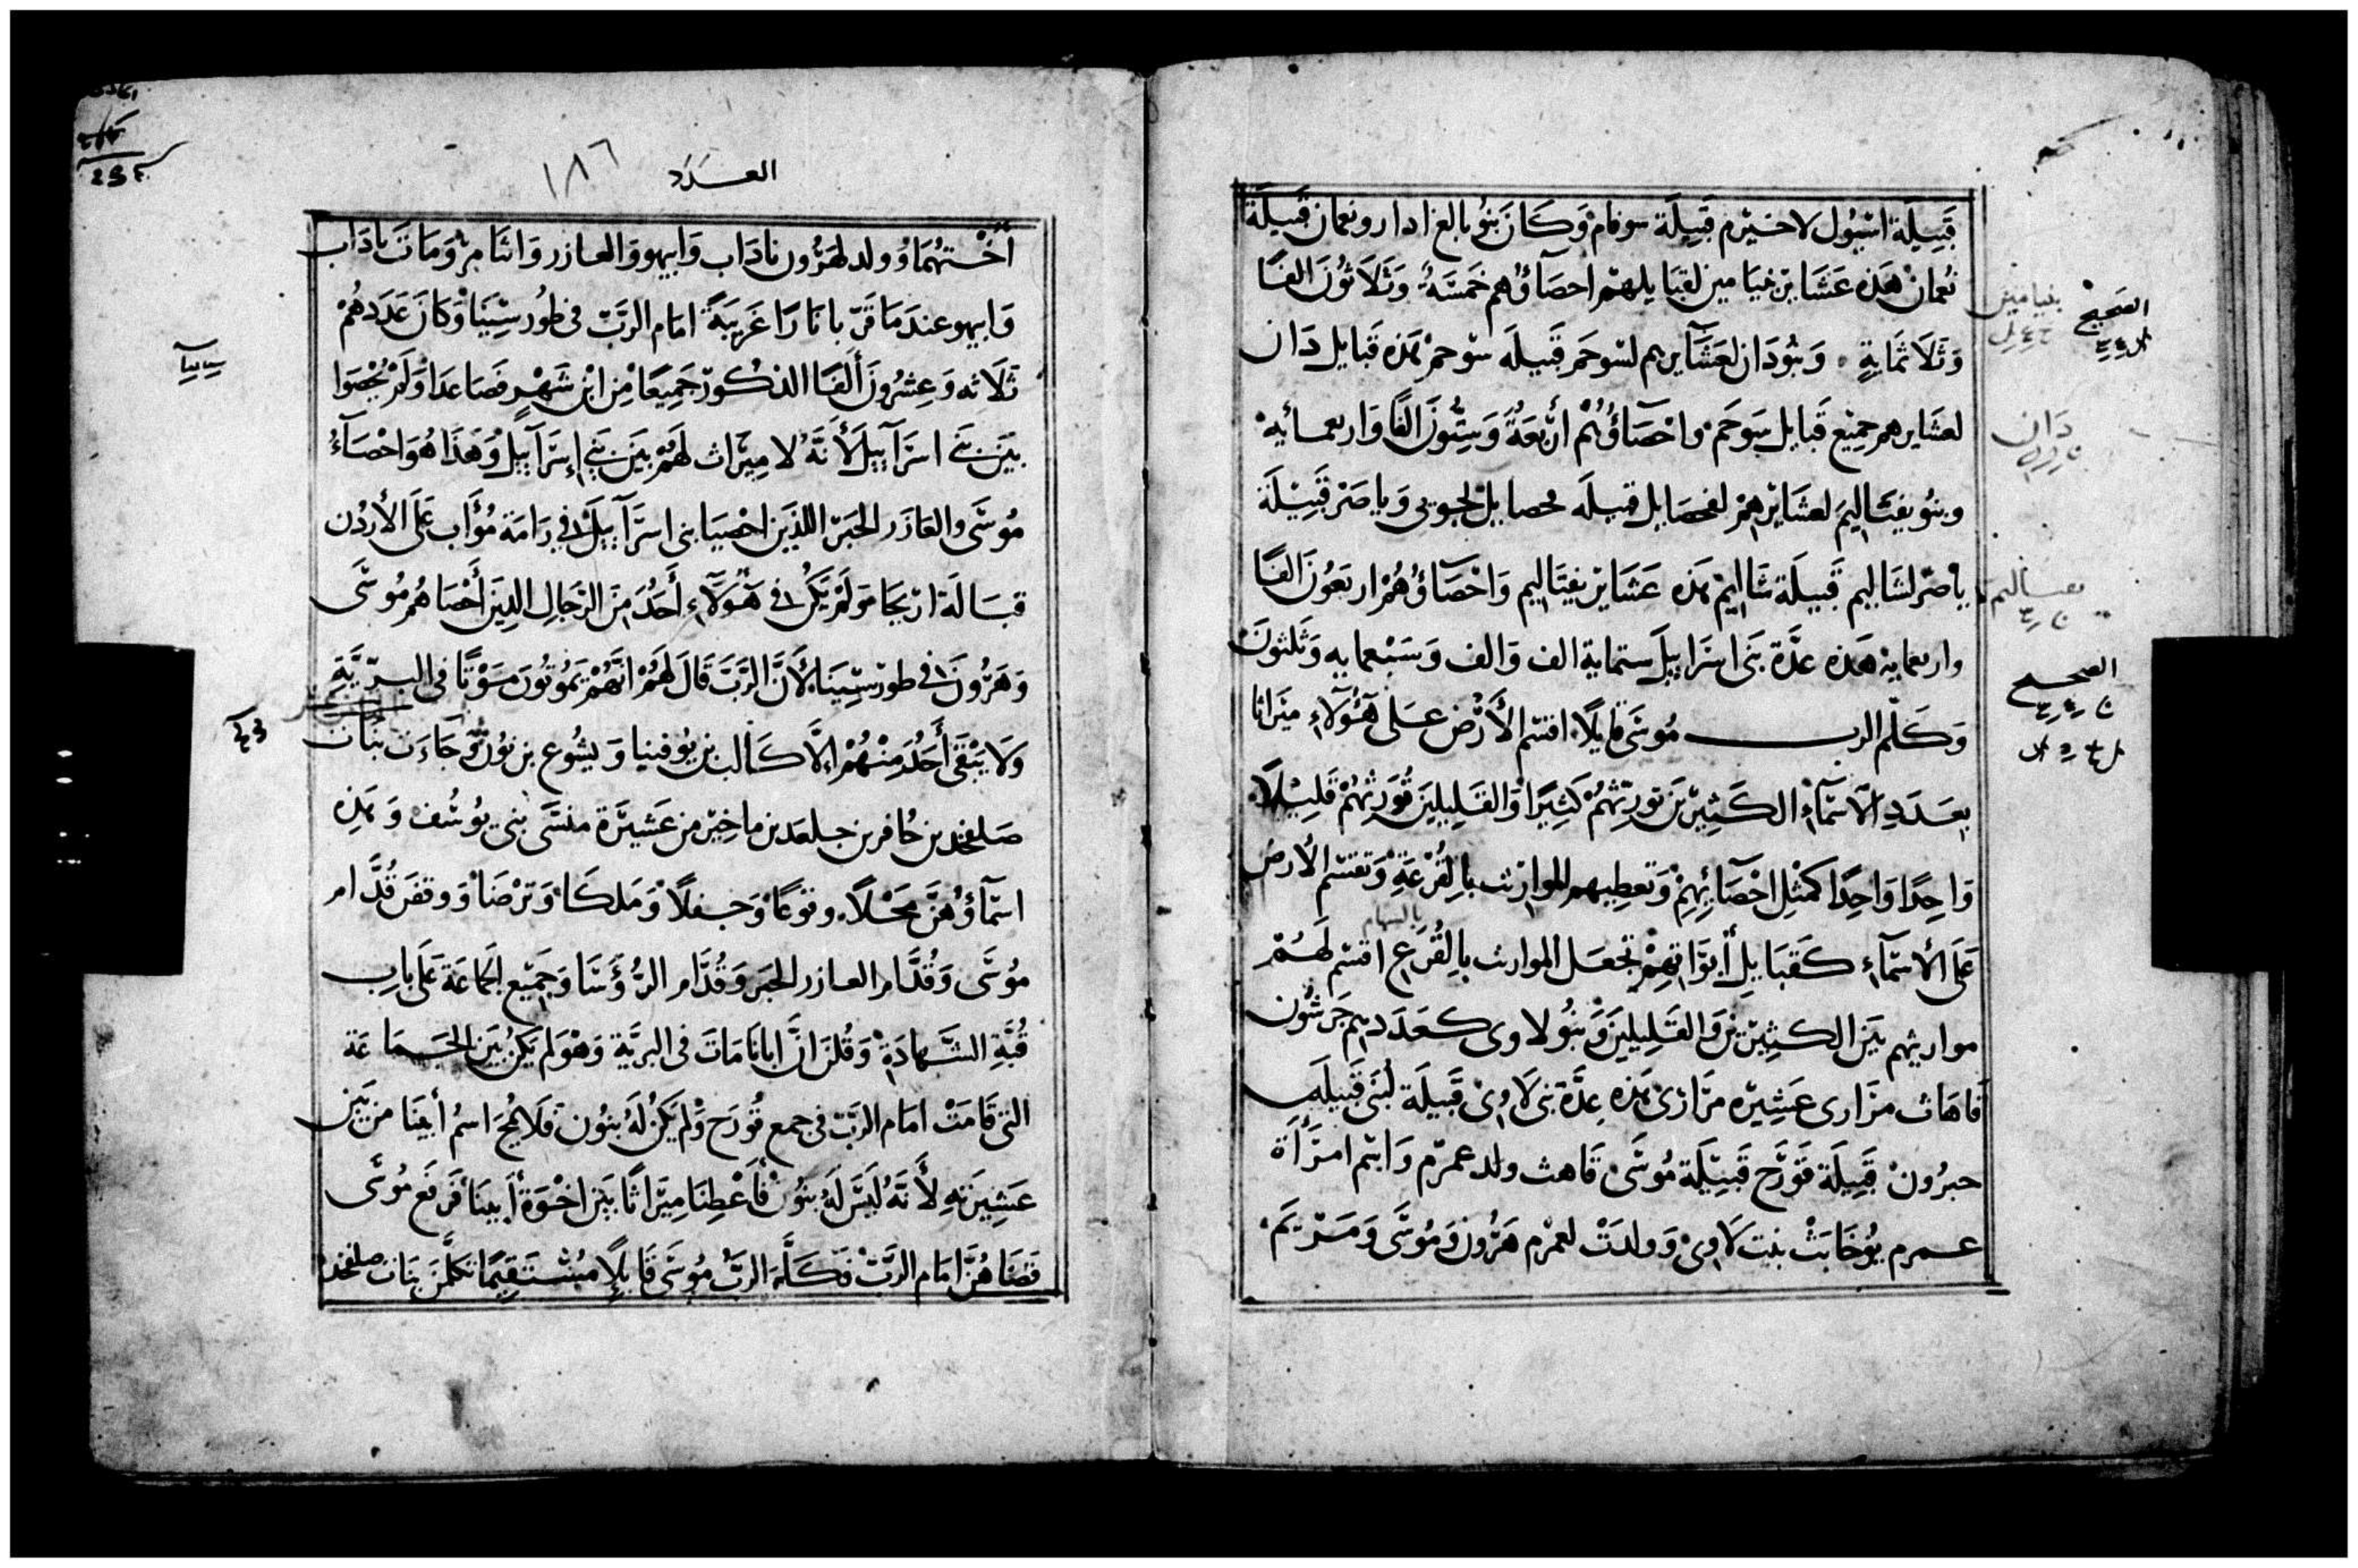 قَبِيلَة اشبُول لاخيرم قَبِيلَة سوفام وَكَانَ بَنُو بالع ادار ونعمان قَبيلَة
نُعمان هَذه عَشَاير بنيامين لقبَايلهم احصَآؤهم خَمسَةُ وَثَلَاثُونَ الفًا
وَثَلَاثمَايةٍ وَبنُودَان لعَشَآيرهم لسوحَم قَبيلَه سَوحم هَذه قَبايل دَان
لعشَايرهم جميع قَبَايل سَوحَم واحصَاؤُهُم أربَعَةُ وَسِتُّونَ الفًا واربعمائه
وبنُو يفتَاليم لعَشَايرهم لمحصَايل قبيلَه محصايل لجوبى وَياصَر قَبِيلَة
يَاصر لشَاليم قَبيلَة شَاليم هَذه عَشَاير يفتَاليم وَاحْصَاؤُهُمْ اربَعُونَ الفًا
واربعمايه هَذه عدَّة بَنى اسرَاييلَ ستماية الف وَالف وَسَبْعمايه وَثَلثونَ
وَكَلّم الرب مُوسَى قايلًا اقسم الأَرْض عَلى هَؤُلَآءِ ميَراثا
بعَدَدِ الأَسمَآءِ الكَثِيرينَ تورثهُمْ كَثِيرًا وَالقَلِيلِينَ تُوَرِثهُمْ قَلِيلًا
وَاحِدًا وَاحِدًا كمَثلِ احْصَائِهِمْ وَتعطِيهم المَوارث بالقُرْعَةِ وَتقتسَم الأَرض
بالسهام
عَلى الأسمَآءِ كَقبَايلِ أبوَاتهِمْ تجعَل الموارث بالقُرَع اقسم لَهُمْ
مواريثهم بَيَن الكثِيرينَ وَالقَلِيلينَ وَبنُو لاوى كعَدَدهم جَرشُون
قَاهَاث مرَارى عَشِيره مرَارى هَذه عِدَّة بَنى لَاوى قَبيلَة لُبنَى قَبيلَه
حبرُون قَبِيلَة قَوْرَح قَبيلَة مُوسَى قَاهث ولد عمرم وَاسم امرَأَة
عمرم يُوخَابَثْ بنت لَاوى وَولدَتْ لعمْرم هَرُون وَمُوسَى وَمَرْيَمَ
الصَحيح
بنيامين
دَان
يفتاليم
الصحيح
العَدَد ١٨٦
أُخْتهُمَا وُولد لهَرُون نادَاب وَابيهو وَالعازر وَاثامر وَمَاتَ نادَاب
وَابيهو عندَ مَا قَرّ بانارًا غَريبَةً امَام الرَبّ فى طُور سِينَا وَكانَ عَدَدهُمْ
ثَلَاثه وَعِشرُونَ أَلفًا الذكُور جَمِيعًا مِن ابْن شَهْر فصَاعدَا وَلَم يُحْصَوا
بَيَن بَنى اسرَآييلَ لأَنَّهُ لا ميرَاث لهُمْ بَيَن بَنى إسرَآييلَ وَهَذَا هُوَ احْصَآءُ
مُوسَى والعَازَر الحَبَر اللذَين احْصيَا بنى اسرَآييلَ فى رَامَة مُؤاب عَلَى الأردُن
قبَالَة اريحَا وَلَمْ يَكُن فى هَؤُلَآءِ أَحَدُ مِنَ الرجَالِ الذِينَ أحْصَاهُم مُوسَى
وَهَرُونَ فى طور سِينَا لأَنَّ الرَبَّ قَالَ لهُمْ انهُمْ يَمُوتُونَ مَوْتًا فى البَريَّةِ
وَلا يَبْقَى أَحَدُ مِنْهُمْ إلَّا كَالب بن يُوفنيا وَيشُوع بن نُون وَجَآءَت بَنَات
صَلفحَد بن حَافر بن جلعد بن ماخير من عَشيَرَة منسَّى بنى يوُسُف وَهَذِه
اسمَآؤهُنَّ مَحْلًا ونوعًا وَحفلًا وَمَلكَا وَترْصَا وَوقفَن قُدَّام
مُوسَى وَقُدَّام العازر الحبر وَقُدَّام الرُؤَسَا وَجَمِيع الجَماعَة عَلَى بابِ
قُبَّةِ الشَّهادَةِ وَقُلنَ انَّ ابانَا مَاتَ فى البريَّة وَهُوَ لَم يَكُن بَين الجَمَاعَة
التى قَامَتْ امَام الرَبّ فى جمع قُورَح وَلم يَكُن لَهُ بنُون فَلَا يُمْحَ اسمُ أبينَا من بَين
عَشِيرَتهِ لأَنَّهُ لَيسَ لَهُ بنُون فأعْطِنَا مِيَراثًا بَيَن اخْوَة أَبينَا فَرفَع مُوسَى
قضَاهُنَّ امَام الرَبّ فَكَلَّمَ الرَبُّ مُوسَى قَايلًا مُسْتَقِيمًا تكلَّمنَ بنَات صلفحد
سينا